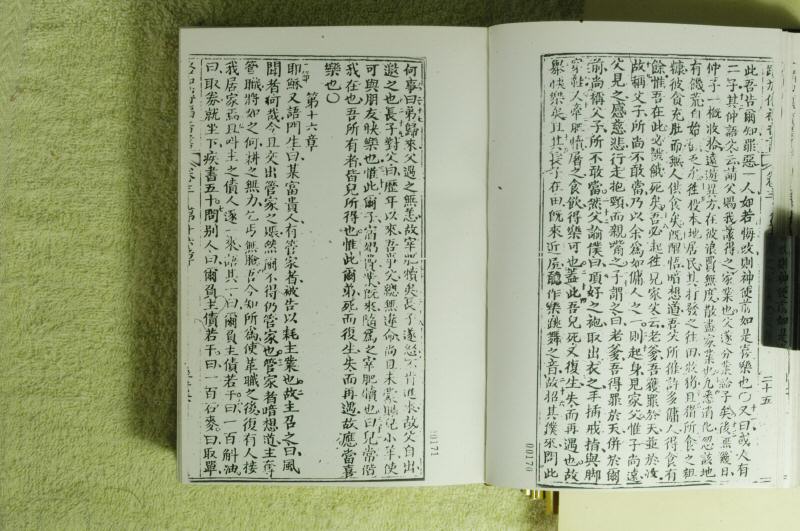 此吾告爾知罪惡一人如若悔改則神使前如是喜樂也〇又曰或人有
二子其仲語父云請父賜我該得之家業也父遂分業給子矣後無幾日
仲子一概收拾遠遊異方在彼浪費無度散盡家業也九悉消化忽該地
有饑荒自始乏
往投本地居民其打發之往田牧猪且猪所食之粗
糠彼食充肚而無人供食矣既醒悟暗想道吾父所雇許多傭人得食有
餘惟吾在此必饑餓死矣吾必起往見家父云老爹吾獲罪於天並於汝
故稱父子所尚不敢當乃以余爲如傭人之一則起身見家父惟子尚遠
父見之感慈悲行走抱頸而親嘴之子謂之曰老爹吾得罪於天併於爾
前尚稱父子所不敢當然父諭僕曰頂好之袍取出衣之手插戒指與脚
穿鞋人宰肥犢屠之食飲得樂可也蓋此吾兒死又復生失而再遇也故
衆快樂矣且其長子在田既來近屋聽作樂跳舞之音故招其僕來問此
二十五
00170
何事曰弟歸來父遇之無恙故宰肥犢矣長子遂怒不肯進來故父自出
邀之也長子對父曰歷年以來吾事父總無違命尚且未蒙賜兒小羊使
可與朋友快樂也惟此爾子
既來隨爲之宰肥犢也曰兒常偕
我在也吾所有者皆兒所得也惟此爾弟死而復生失而再遇故應當喜
樂也〇
第十六章
耶穌又語門生曰某富貴人有管家者被告以耗主業也故主召之曰風
聞者何哉今且交出管家之賬然爾不得仍管家也管家者暗想道主奪
管職將如之何耕之無力乞丐無臉吾今知所爲使革職之後復有人接
我居家焉且呌主之債人逐一來語其一曰爾負主債若干曰一百斛油
曰取券就坐下疾書五十問别人曰爾負主債若干曰一百石麥曰取單
第十六章
00171